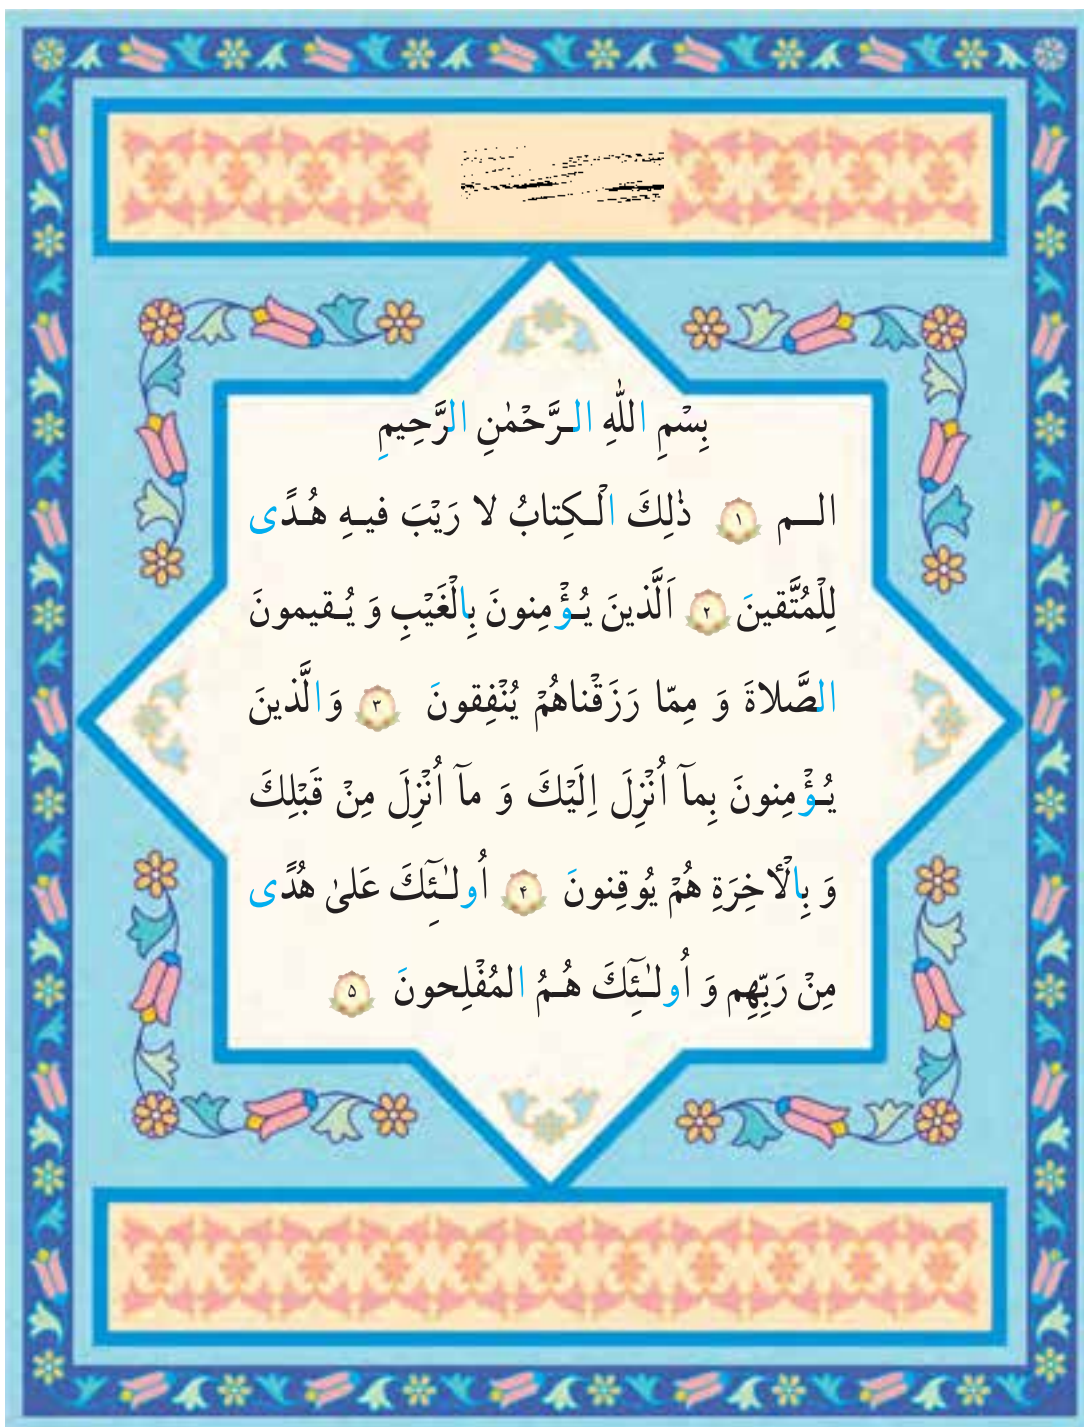 بِسْمِ اللّٰهِ الرَّحْمٰنِ الرَّحِيمِ
الــم ۱ ذٰلِكَ الْكِتابُ لا رَيْبَ فيهِ هُدًى
لِلْمُتَّقينَ ۲ اَلَّذينَ يُؤْمِنونَ بِالْغَيْبِ وَ يُقيمونَ
الصَّلاةَ وَ مِمّا رَزَقْناهُمْ يُنْفِقونَ ۳ وَالَّذينَ
يُؤْمِنونَ بِمآ اُنْزِلَ اِلَيْكَ وَ مآ اُنْزِلَ مِنْ قَبْلِكَ
وَ بِالْأخِرَةِ هُمْ يُوقِنونَ ۴ اُولـٰٓئِكَ عَلىٰ هُدًى
مِنْ رَبِّهِم وَ اُولـٰٓئِكَ هُمُ المُفْلِحونَ ۵